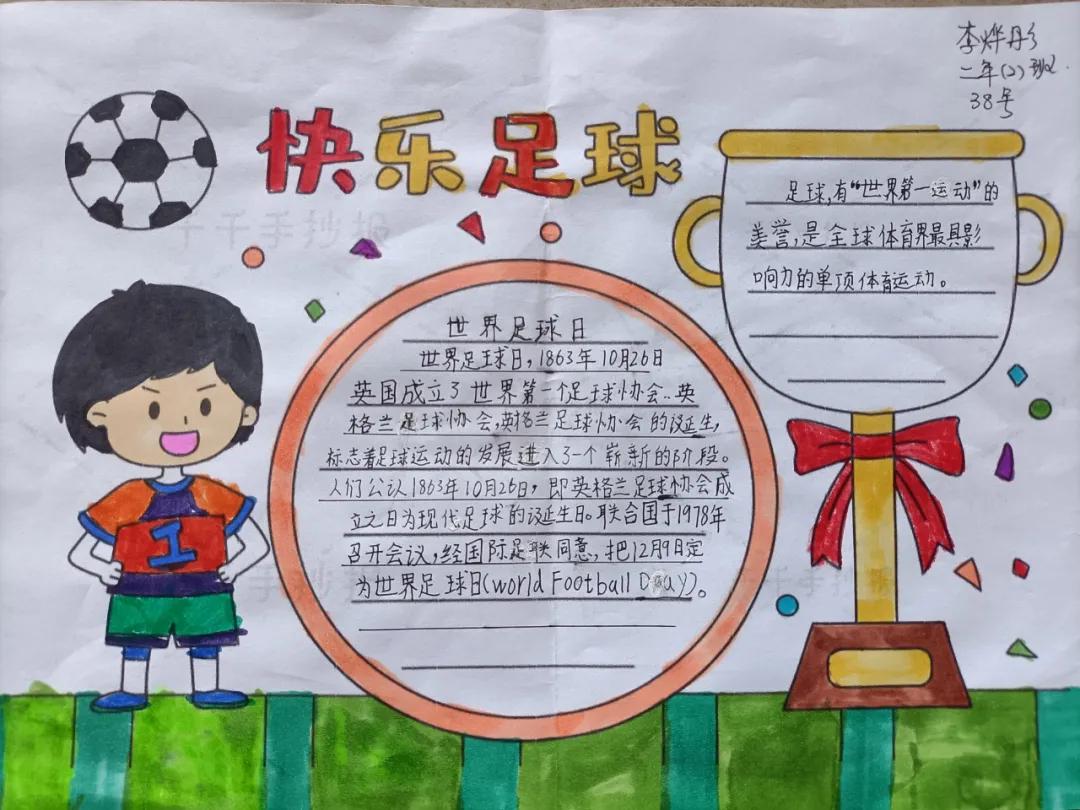 李烨彤
二年(2)班
38号
快乐足球
千千手抄报
足球,有“世界第一运动”的
美誉,是全球体育界最具影
响力的单项体育运动。
世界足球日
世界足球日,1863年10月26日
英国成立了世界第一个足球协会..英
格兰足球协会,英格兰足球协会的诞生,
标志着足球运动的发展进入了一个崭新的阶段。
人们公认1863年10月26日,即英格兰足球协会成
立之日为现代足球的诞生日。联合国于1978年
召开会议,经国际足联同意,把12月9日定
为世界足球日(world Football Day)。
1